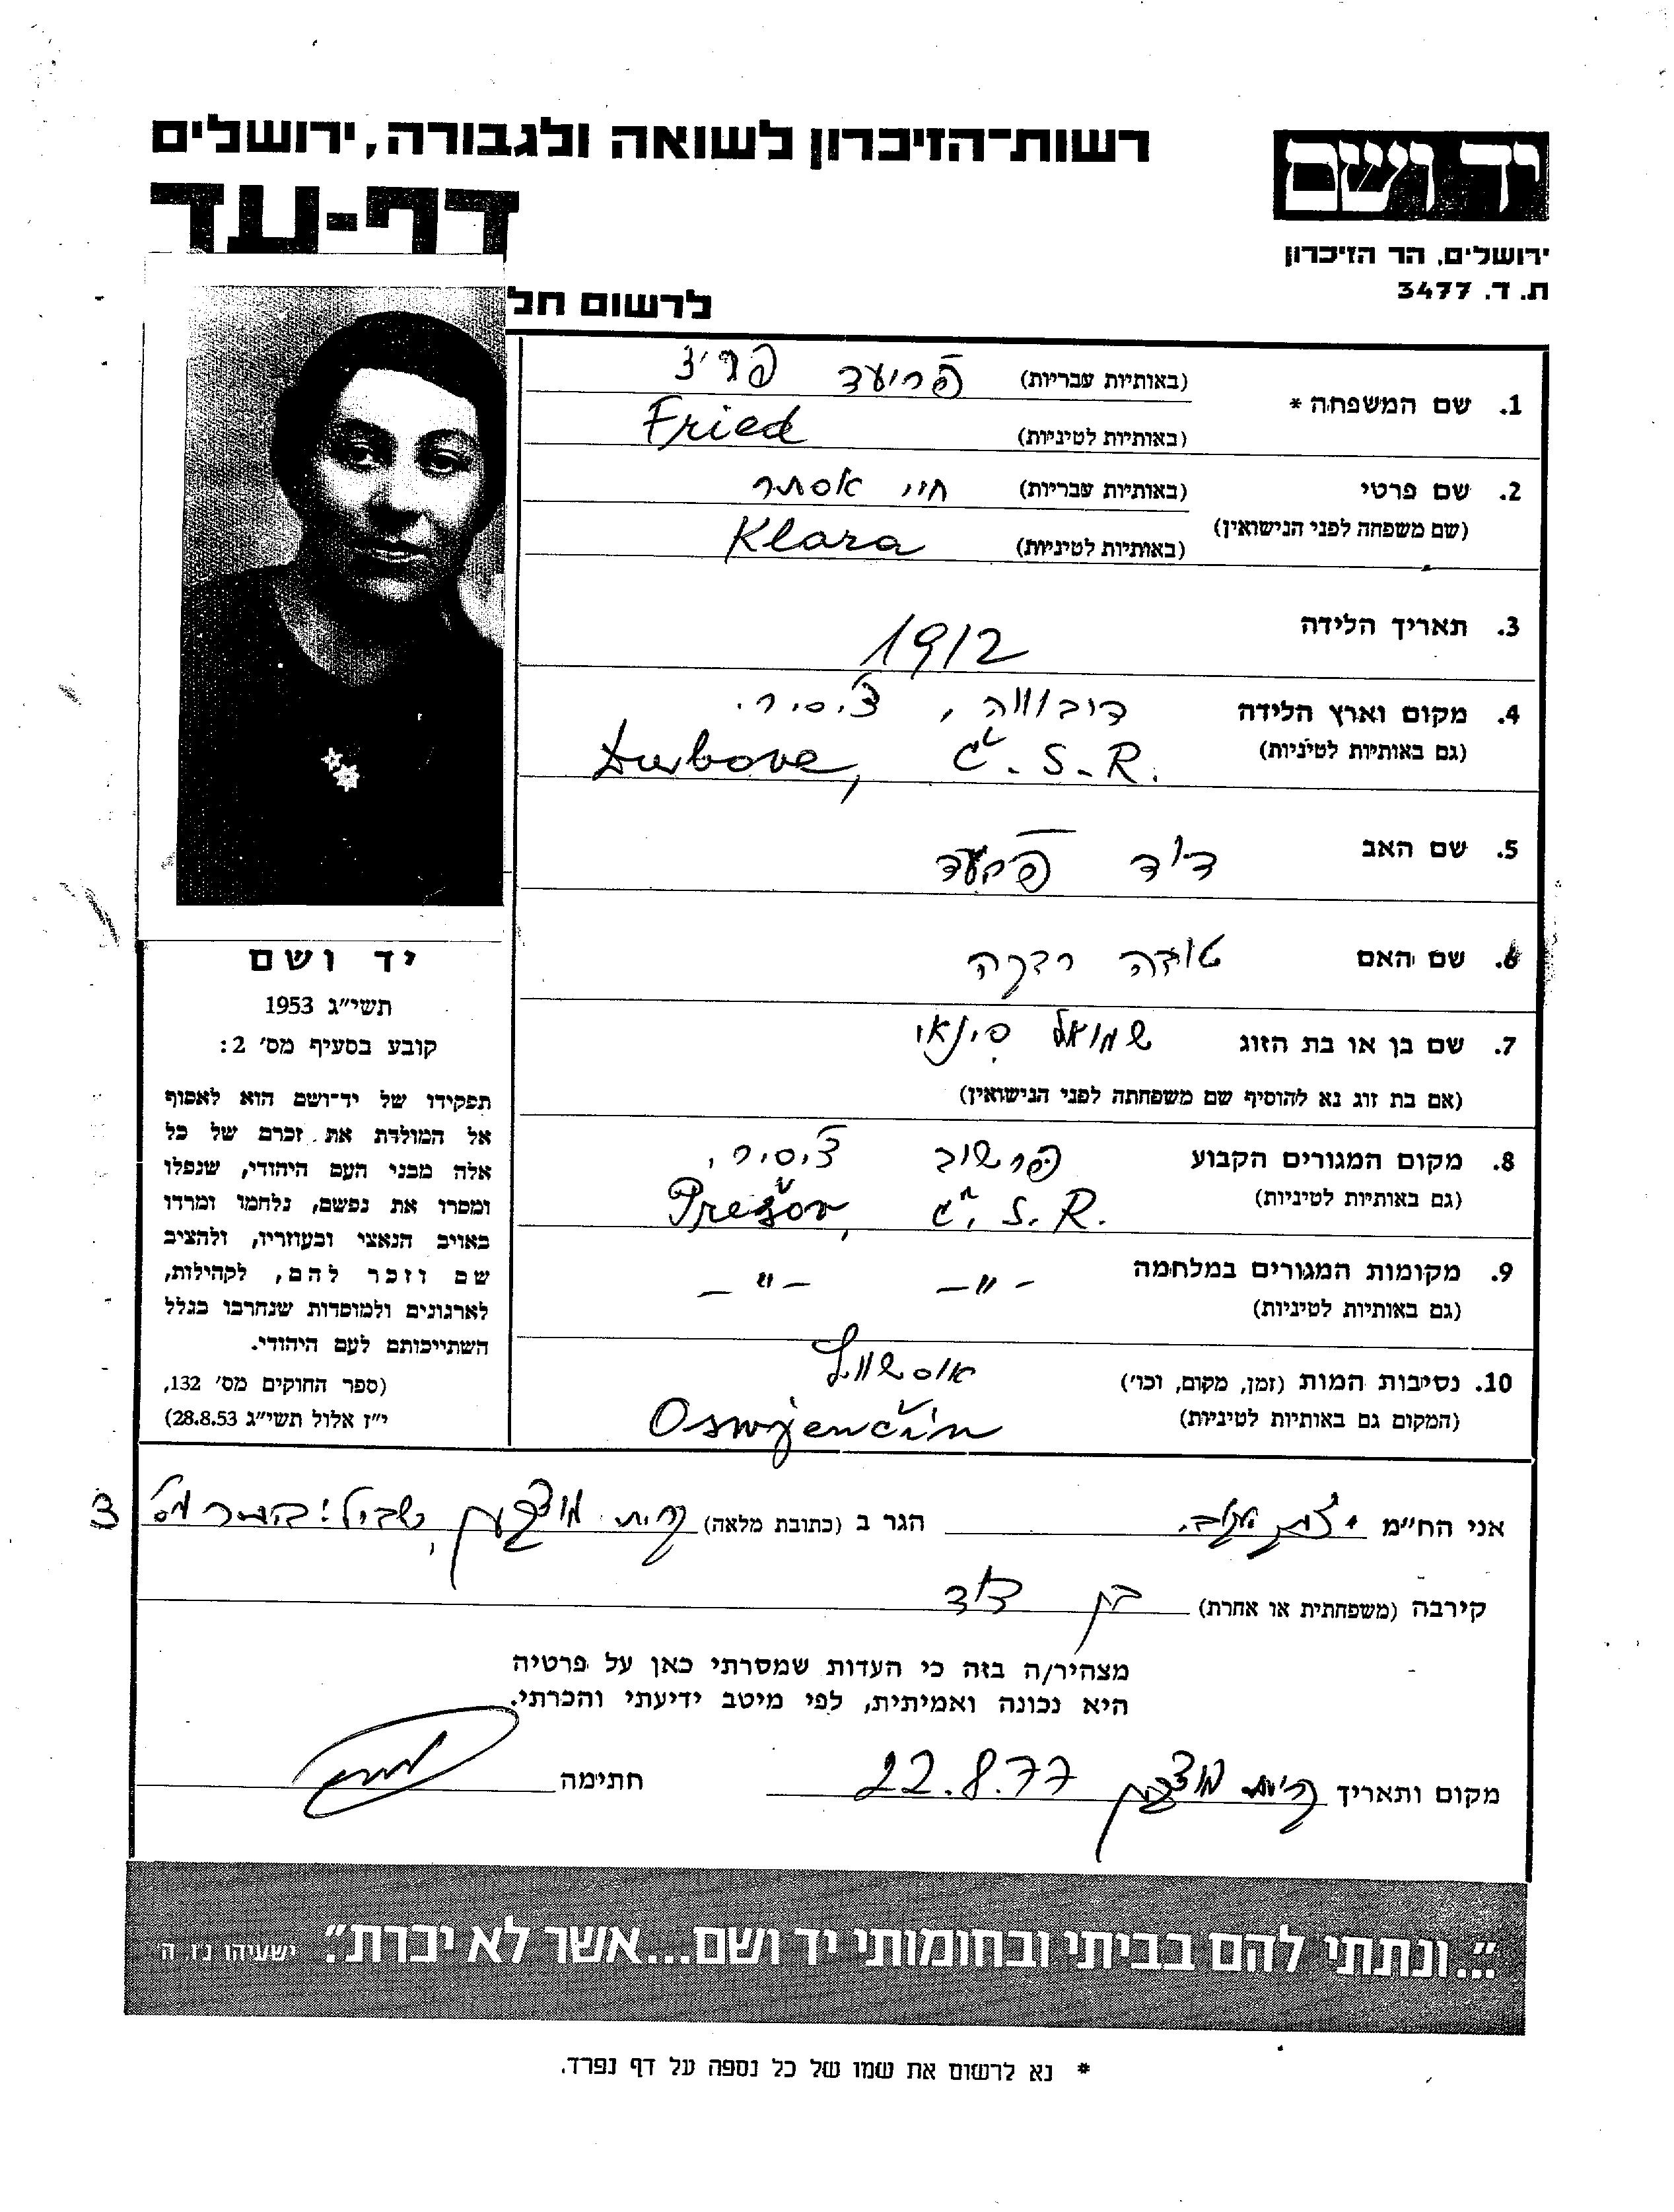 רשות־הזיכרון לשואה ולגבורה, ירושלים
יד ושם
דף-עד
ירושלים, הר הזיכרון
ת. ד. 3477
לרשום חל
1. שם המשפחה *
(באותיות עבריות) פריעד
(באותיות לטיניות) Fried
2. שם פרטי
(שם משפחה לפני הנישואין)
(באותיות עבריות) אסתר
(באותיות לטיניות) Klara
3. תאריך הלידה 1912
4. מקום וארץ הלידה דובווה, צ'.ס.ר.
(גם באותיות לטיניות) Dubove, Č.S.R.
5. שם האב דוד פריעד
6. שם האם רבקה
7. שם בן או בת הזוג שמואל
(אם בת זוג נא להוסיף שם משפחתה לפני הנישואין)
8. מקום המגורים הקבוע פרשוב צ'.ס.ר.
(גם באותיות לטיניות) Prešov, Č.S.R.
9. מקומות המגורים במלחמה -"- -"-
(גם באותיות לטיניות)
10. נסיבות המות (זמן, מקום, וכו')
(המקום גם באותיות לטיניות) Oswjenčin
יד ושם
תשי"ג 1953
קובע בסעיף מס' 2:
תפקידו של יד־ושם הוא לאסוף
אל המולדת את זכרם של כל
אלה מבני העם היהודי, שנפלו
ומסרו את נפשם, נלחמו ומרדו
באויב הנאצי ובעוזריו, ולהציב
שם וזכר להם, לקהילות,
לארגונים ולמוסדות שנחרבו בגלל
השתייכותם לעם היהודי.
(ספר החוקים מס' 132,
י"ז אלול תשי"ג 28.8.53)
אני הח"מ הגר ב (כתובת מלאה) קרית מוצקין, 3
קירבה (משפחתית או אחרת) בן דוד
מצהיר/ה בזה כי העדות שמסרתי כאן על פרטיה
היא נכונה ואמיתית, לפי מיטב ידיעתי והכרתי.
מקום ותאריך קרית מוצקין 22.8.77 חתימה
"...ונתתי להם בביתי ובחומותי יד ושם...אשר לא יכרת". ישעיהו נ'ו, ה
* נא לרשום את שמו של כל נספה על דף נפרד.